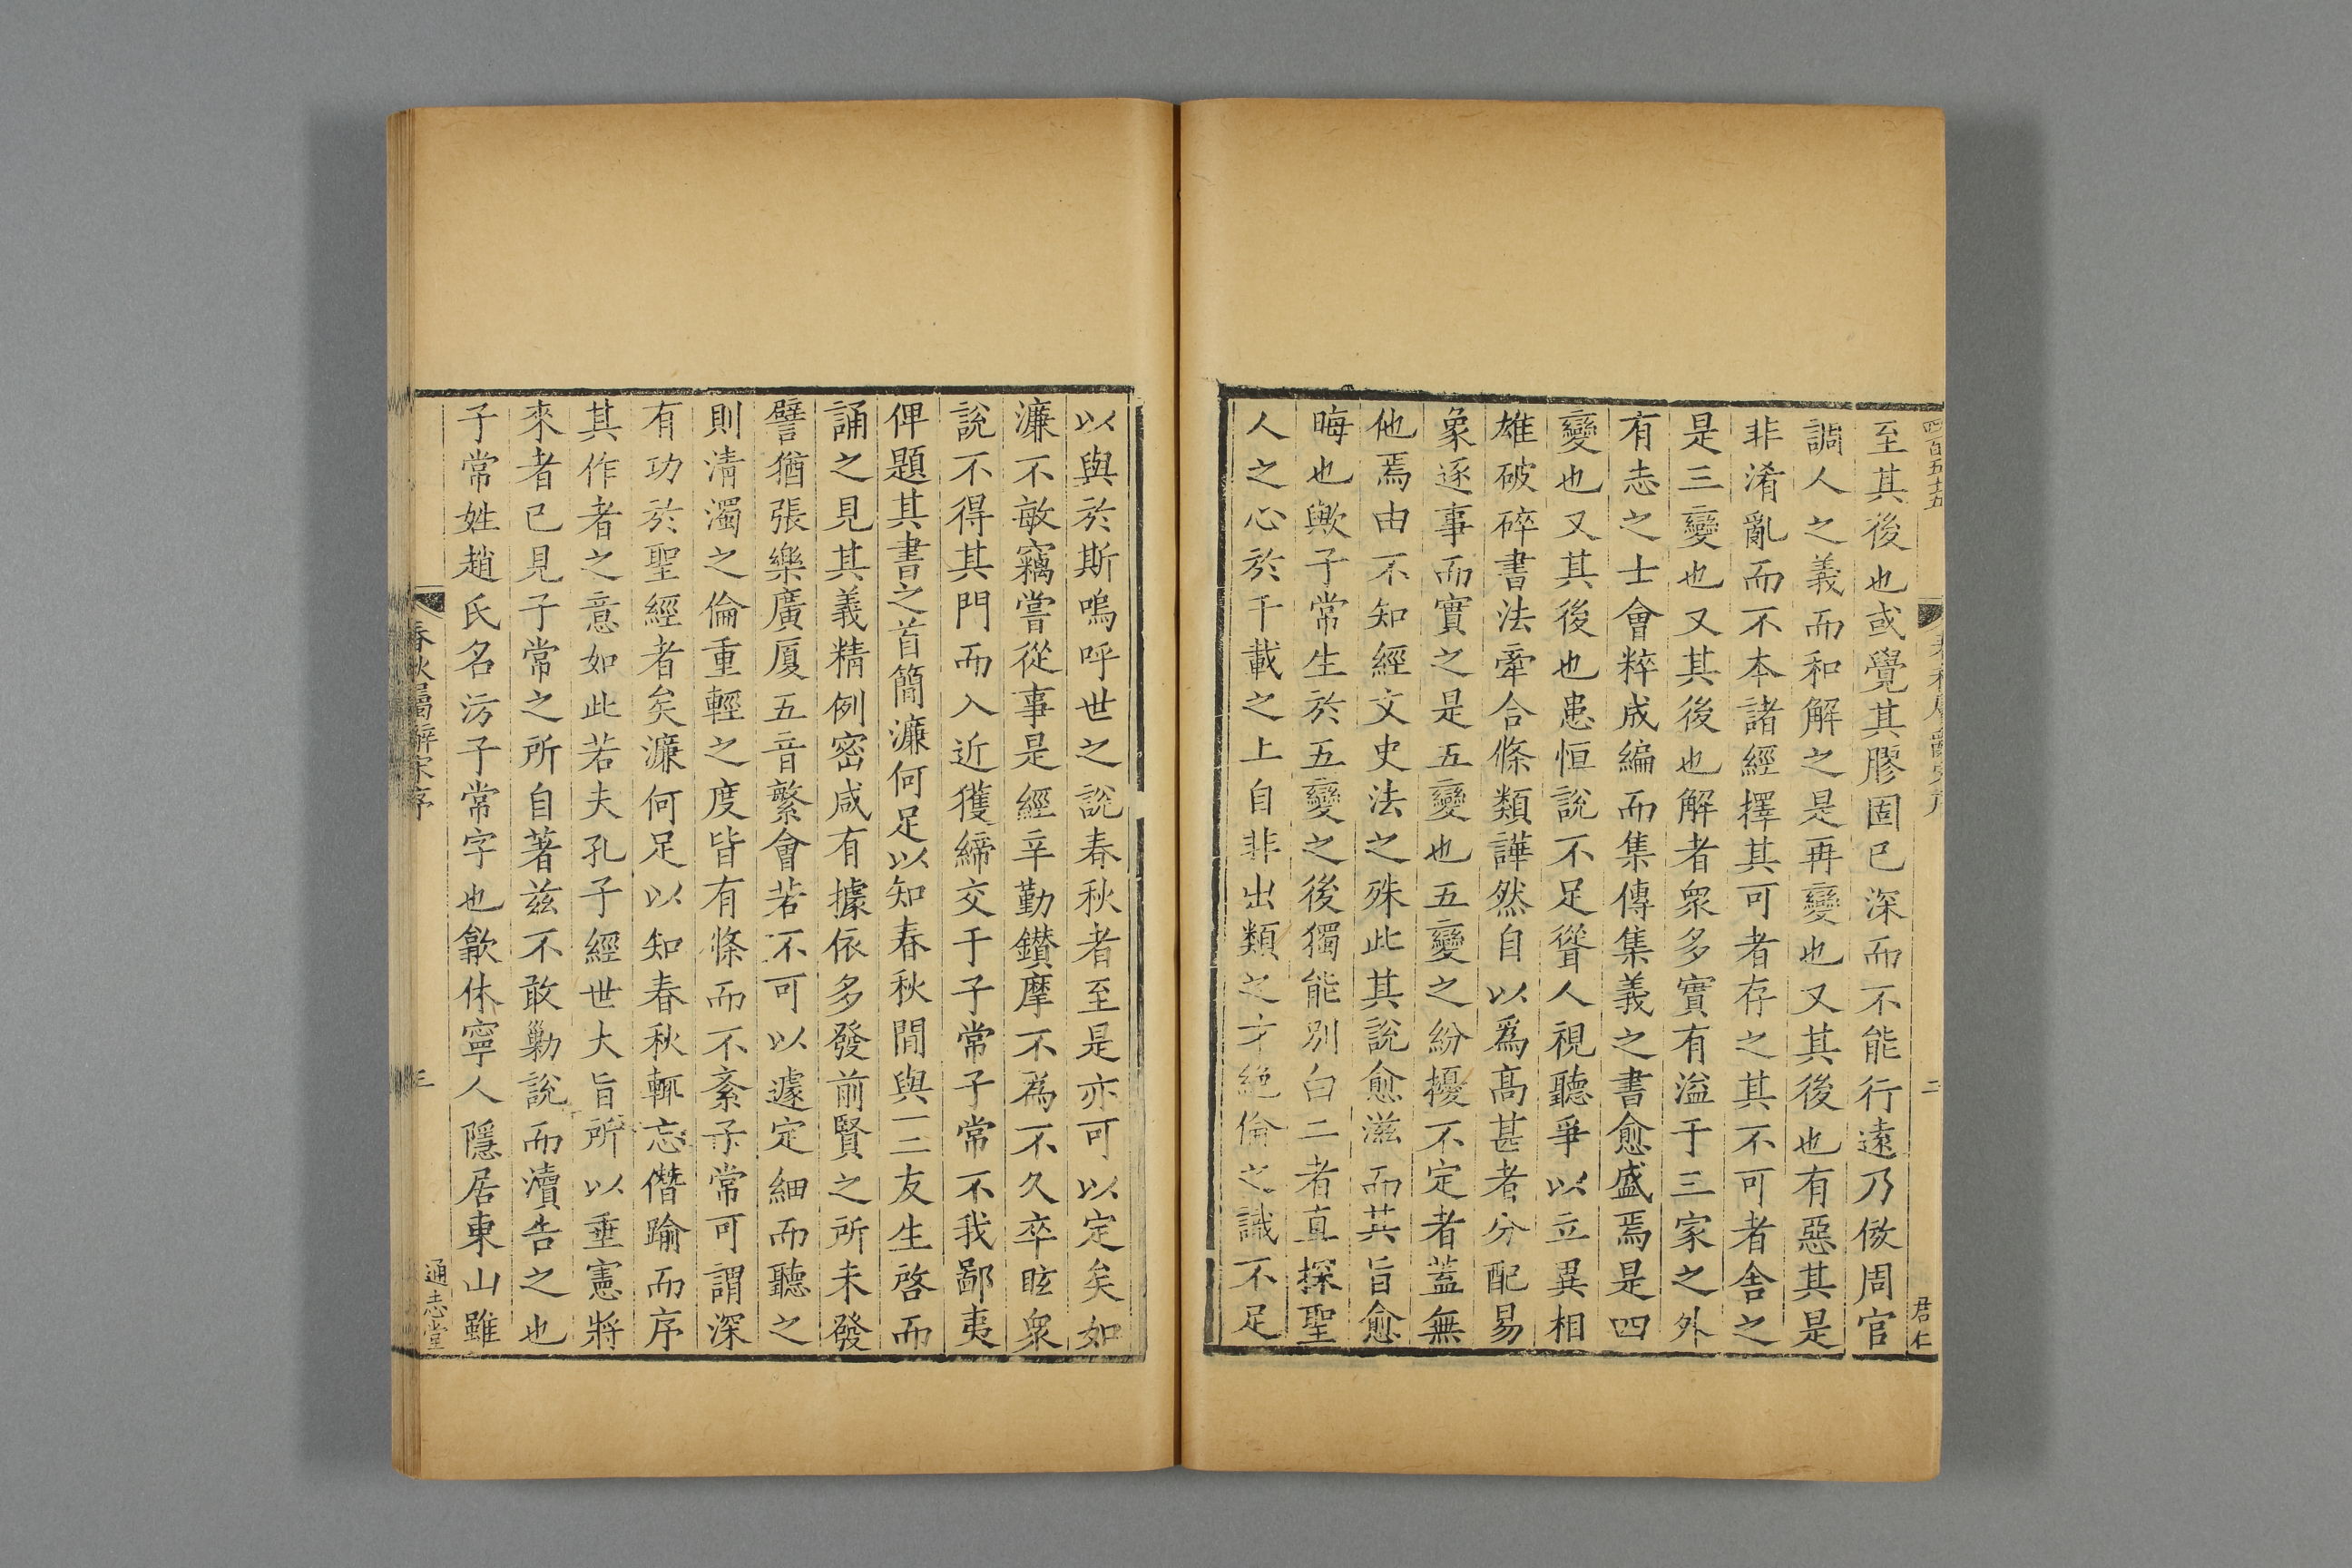 四百五十五
二
君仁
至其後也或覺其膠固已深而不能行遠乃倣周官
調人之義而和解之是再變也又其後也有惡其是
非淆亂而不本諸經擇其可者存之其不可者舍之
是三變也又其後也解者衆多實有溢于三家之外
有志之士會粹成編而集傳集義之書愈盛焉是四
變也又其後也患恒說不足聳人視聽爭以立異相
雄破碎書法牽合條類譁然自以爲高甚者分配易
象逐事而實之是五變也五變之紛擾不定者蓋無
他焉由不知經文史法之殊此其說愈滋而其旨愈
晦也歟子常生於五變之後獨能別白二者直探聖
人之心於千載之上自非出類之才絕倫之識不足
以與於斯嗚呼世之說春秋者至是亦可以定矣如
濂不敏竊嘗從事是經辛勤鑚摩不爲不久卒眩衆
說不得其門而入近獲締交于子常子常不我鄙夷
俾題其書之首簡濂何足以知春秋間與一二友生啓而
誦之見其義精例密咸有據依多發前賢之所未發
譬猶張樂廣厦五音繁會若不可以遽定細而聽之
則清濁之倫重輕之度皆有條而不紊子常可謂深
有功於聖經者矣濂何足以知春秋輒忘僭踰而序
其作者之意如此若夫孔子經世大旨所以垂憲將
來者已見子常之所自著茲不敢勦說而瀆告之也
子常姓趙氏名汸子常字也歙休寧人隱居東山雖
春秋屬辭宋序
三
通志堂